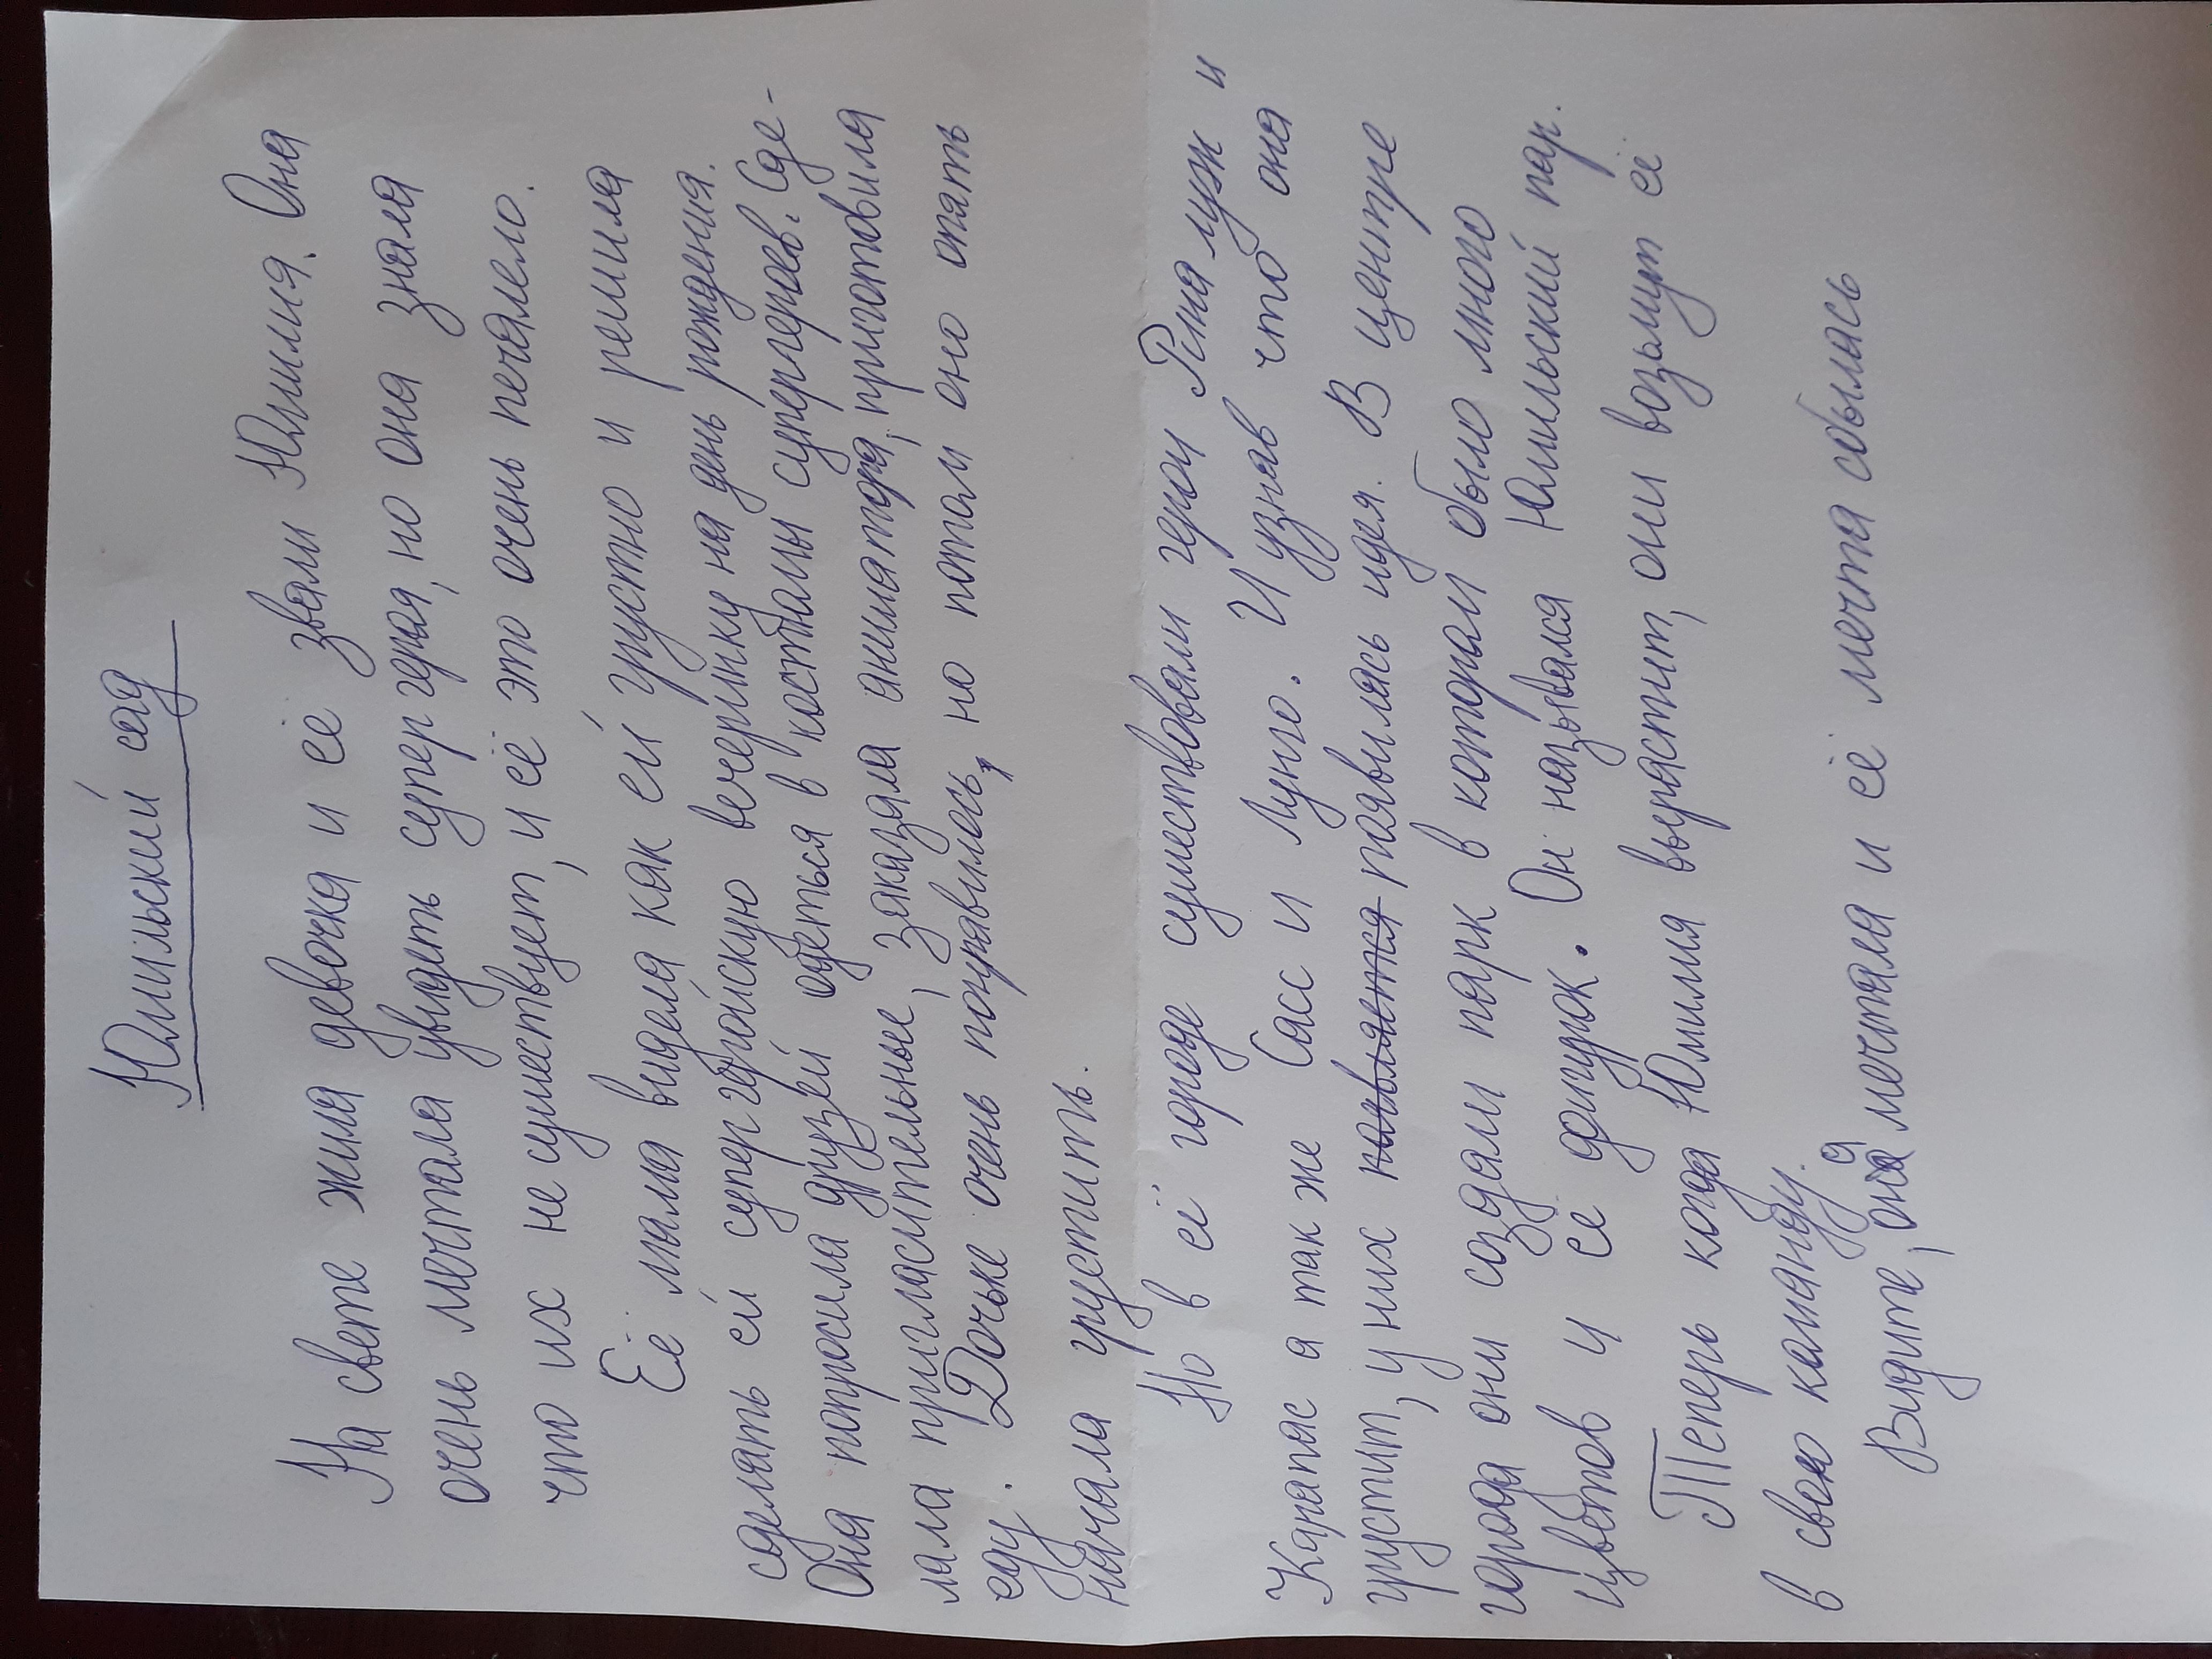 Юмильский сад
На свете жила девочка и её звали Юмилия. Она
очень мечтала увидеть супер героя, но она знала
что их не сушествует, и её это очень печалело.
Её мама видела как ей грустно и решила
сделать ей супер геройскую вечеринку на день рождения.
Она попросила друзей одеться в костюмы супергероев. Сде-
лала пригласительные, заказала аниматора, приготовила
еду. Дочьке очень понравилось, но потом оно опять
начала грустить.
Но в её городе сушествовали герои Рена луж и
Карапас а так же Сасс и Лунго. И узнав что она
грустит, у них появляется появилась идея. В центре
города они создали парк в котором было много
цветов и её фигурок. Он назывался Юмильский пар.
Теперь когда Юмилия вырастит, они возьмут её
в свою команду.
Видите, она мечтала и её мечта сбылась